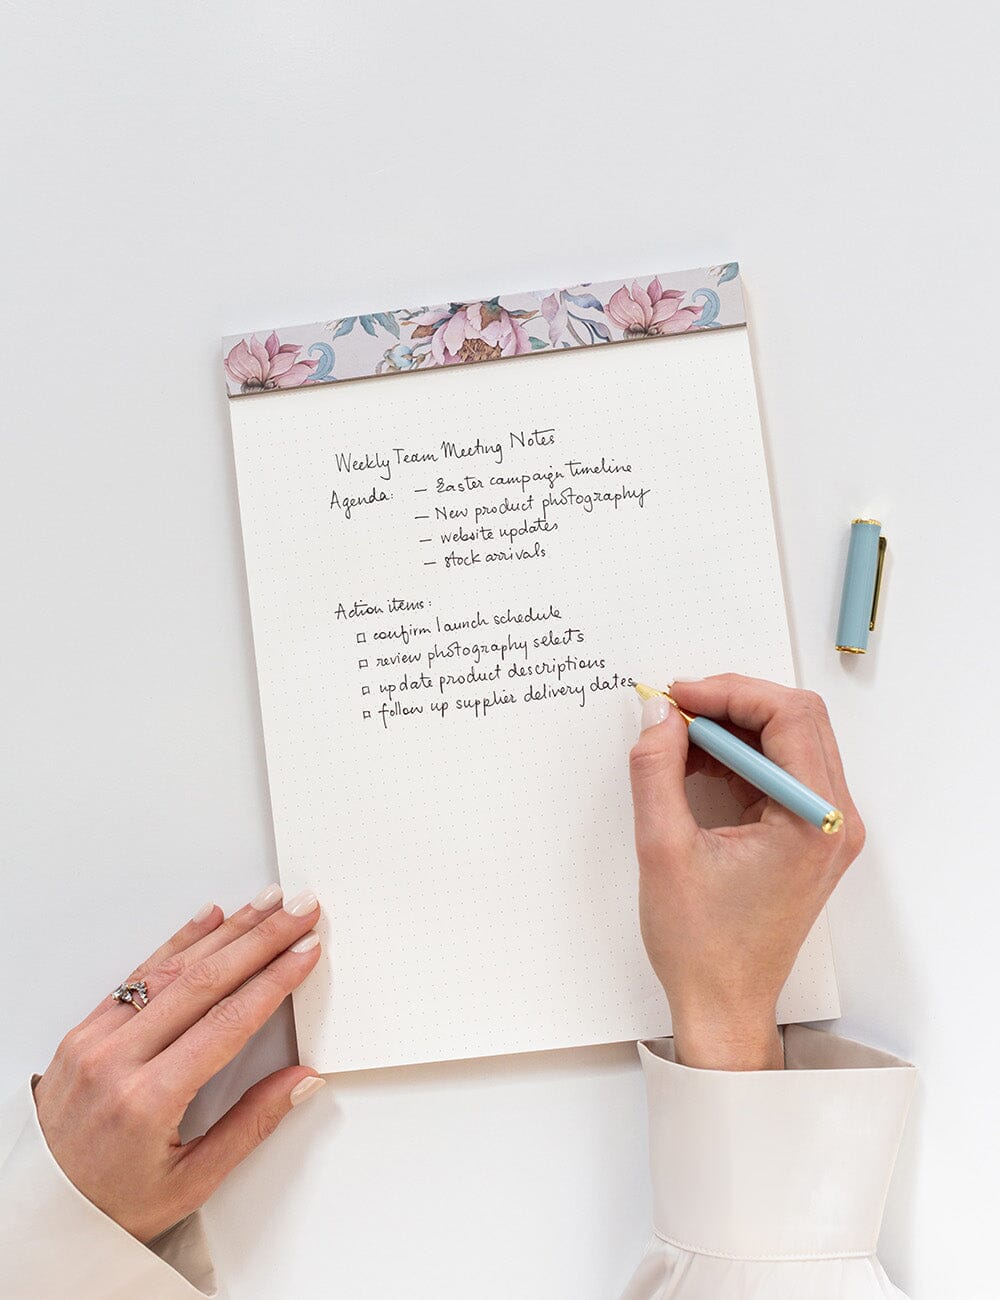 Weekly Team Meeting Notes
Agenda: – Easter campaign timeline
– New product photography
– website updates
– stock arrivals
Action items:
□ confirm launch schedule
□ review photography selects
□ update product descriptions
□ follow up supplier delivery dates